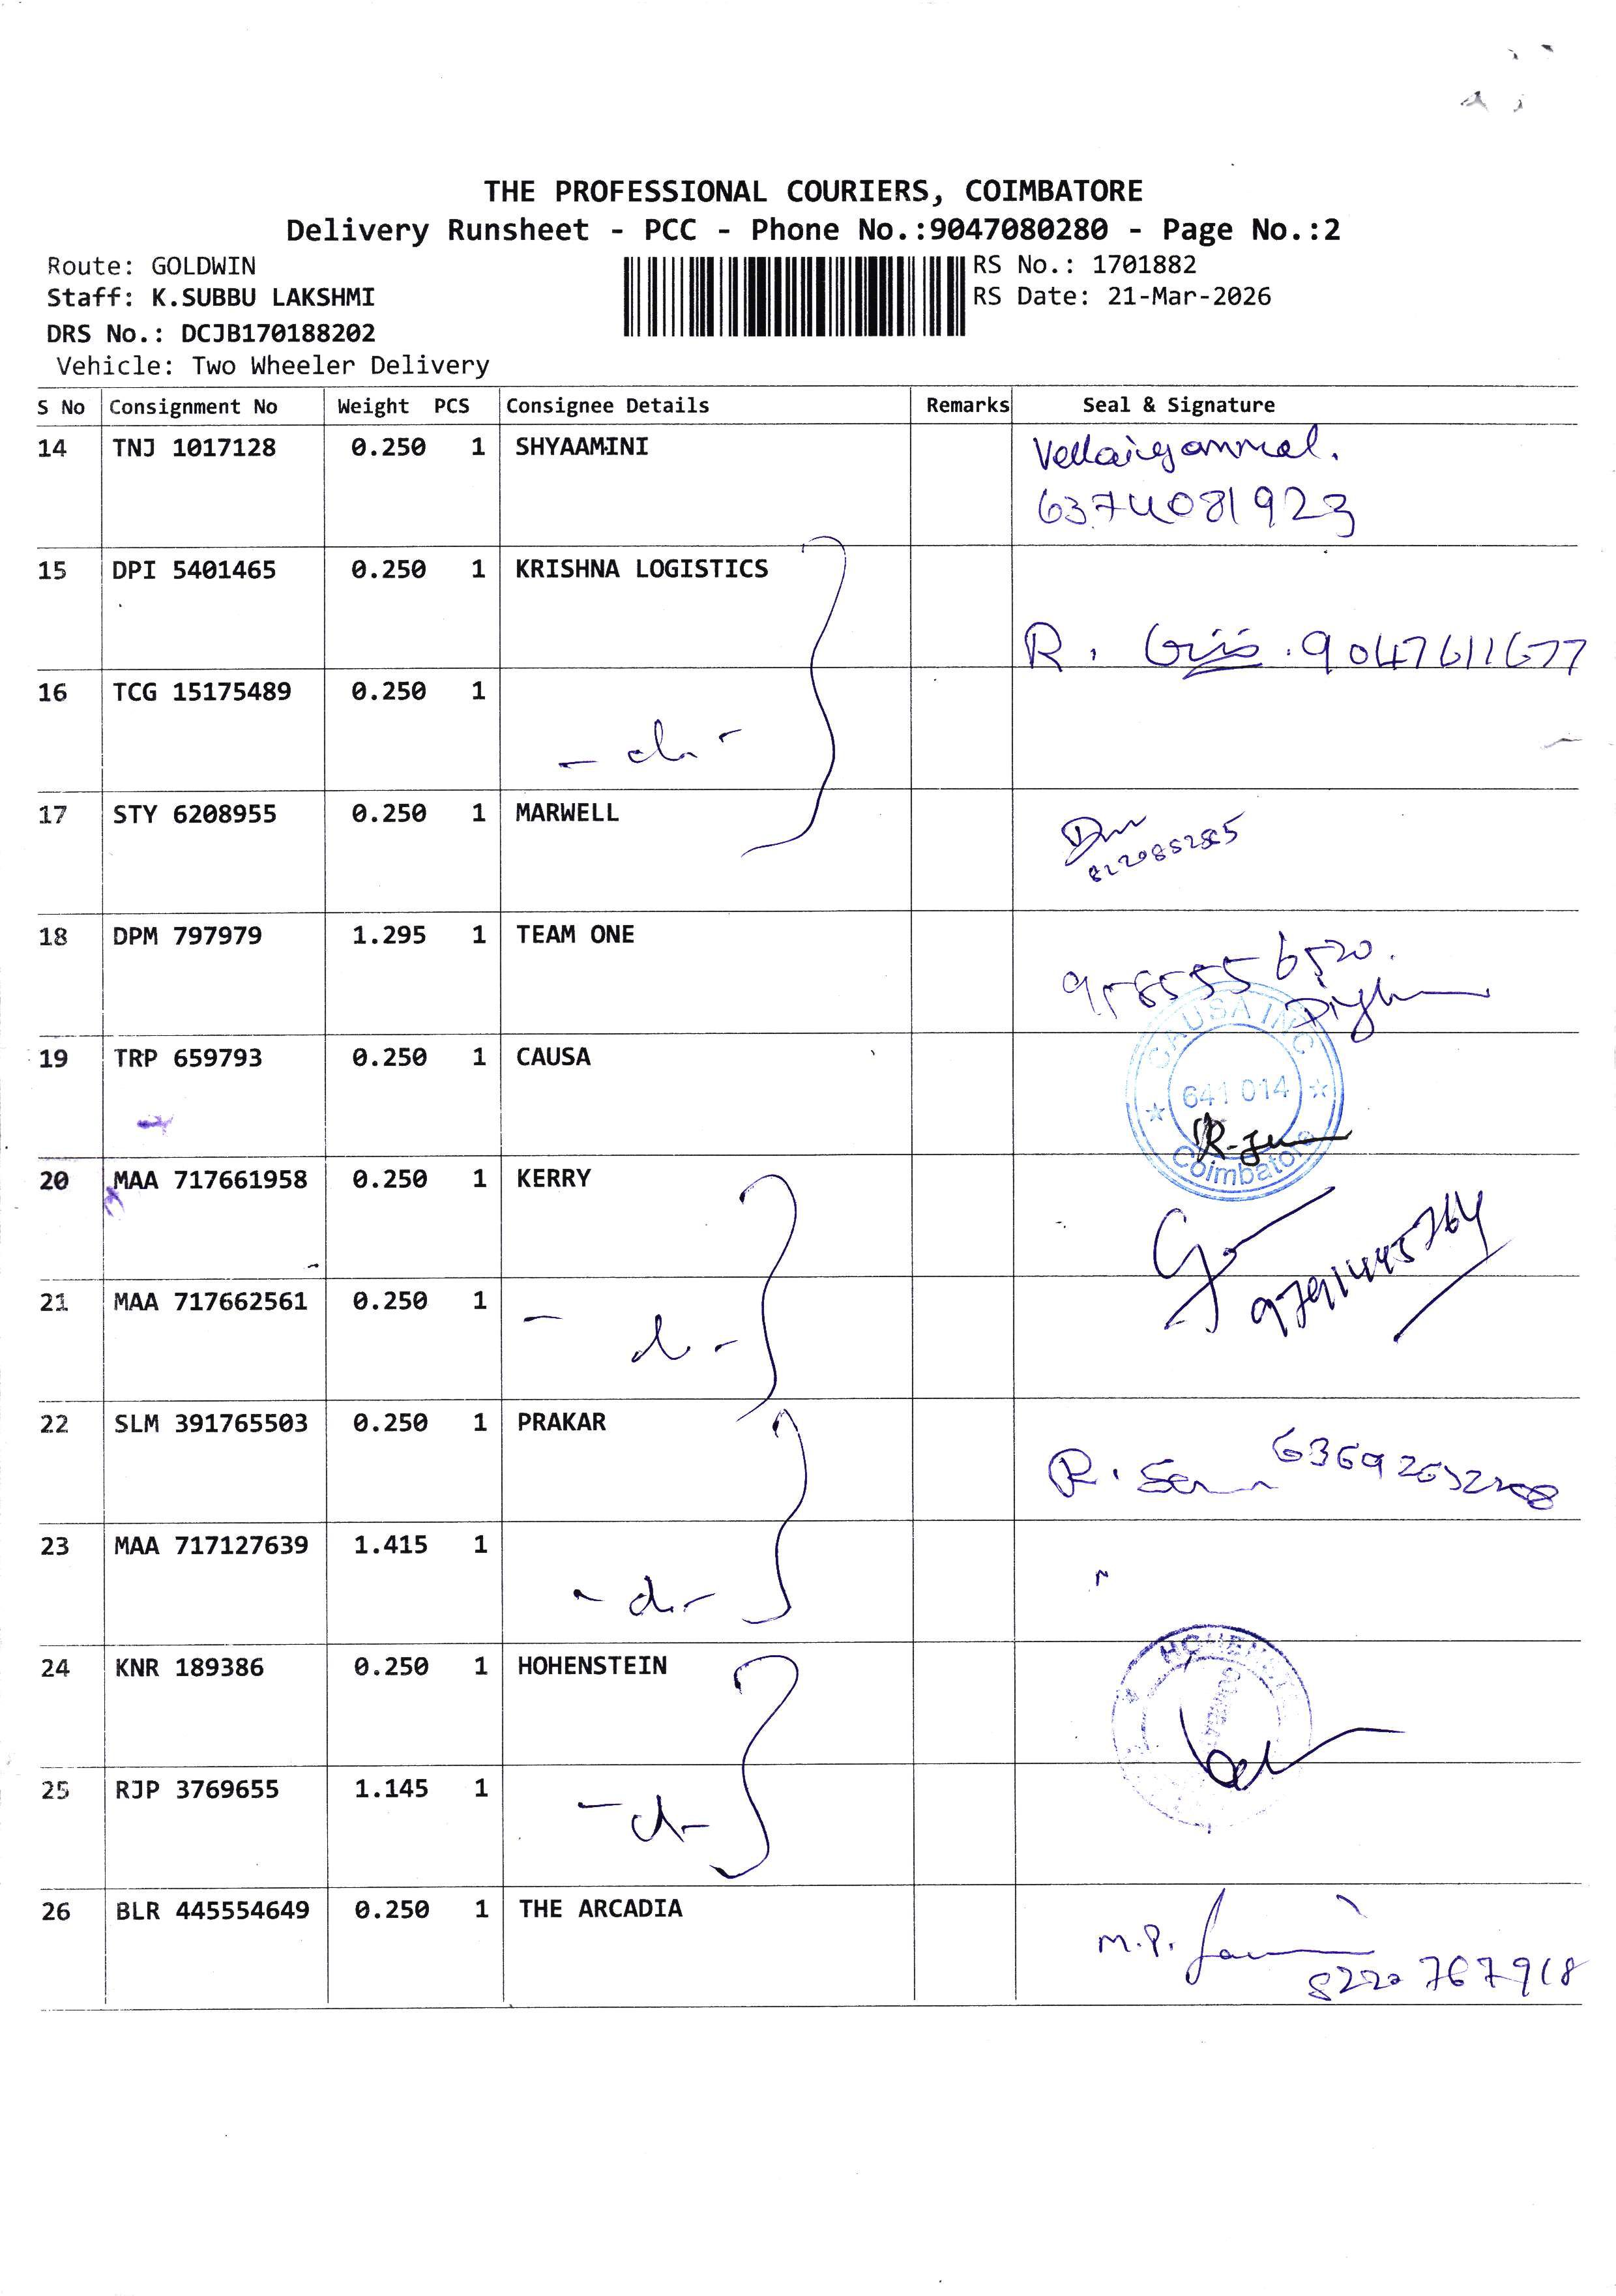 THE PROFESSIONAL COURIERS, COIMBATORE
Delivery Runsheet - PCC - Phone No.:9047080280 - Page No.:2
Route: GOLDWIN
Staff: K.SUBBU LAKSHMI
DRS No.: DCJB170188202
Vehicle: Two Wheeler Delivery
RS No.: 1701882
RS Date: 21-Mar-2026
S No Consignment No Weight PCS Consignee Details Remarks Seal & Signature
14 TNJ 1017128 0.250 1 SHYAAMINI
6374081923
15 DPI 5401465 0.250 1 KRISHNA LOGISTICS
R. 9047611677
16 TCG 15175489 0.250 1
17 STY 6208955 0.250 1 MARWELL
18 DPM 797979 1.295 1 TEAM ONE
19 TRP 659793 0.250 1 CAUSA
CAUSA INC
641 014
Coimbatore
20 MAA 717661958 0.250 1 KERRY
9791445764
21 MAA 717662561 0.250 1
22 SLM 391765503 0.250 1 PRAKAR
R.
23 MAA 717127639 1.415 1
24 KNR 189386 0.250 1 HOHENSTEIN
25 RJP 3769655 1.145 1
26 BLR 445554649 0.250 1 THE ARCADIA
M.P.
8220767918